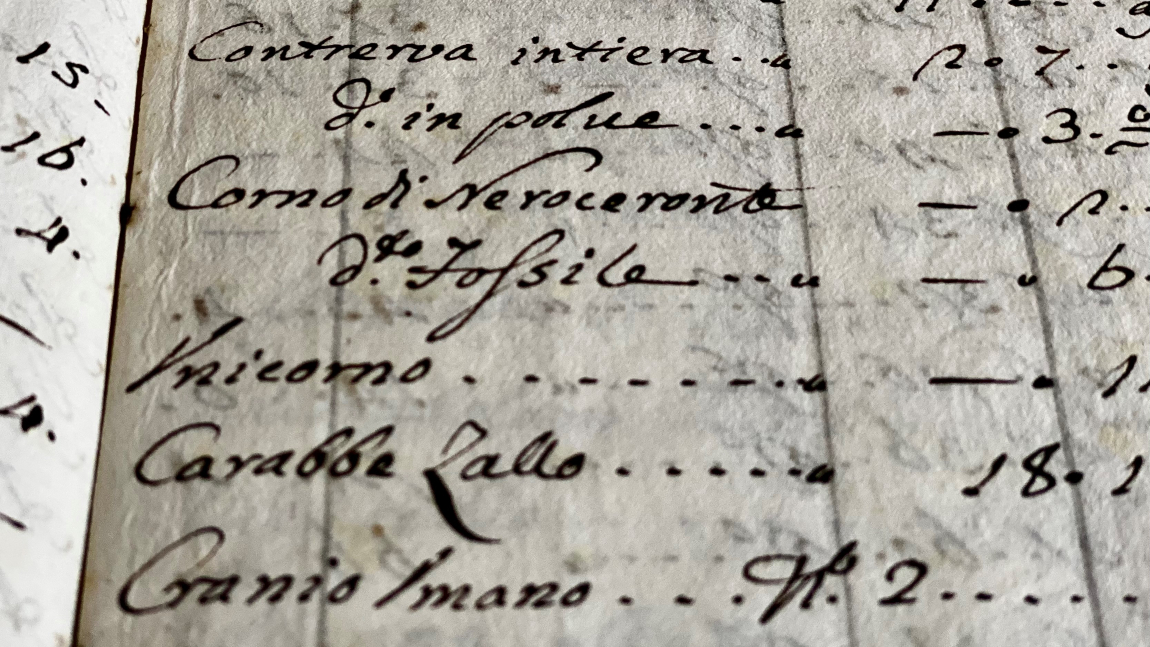 15.
16.
4.
4.
Contrerva intiera . . " 2 . 7 . .
d.º in polue . . . " — . 3 .
Corno di Neroceronte — . 2 . .
d.to Fossile . . . " — . 6 .
Vnicorno . . . . . . . " — . 11
Carabbe Zallo . . . . . " 18 . 1
Cranio Vmano . . . N.º 2 . . . . .